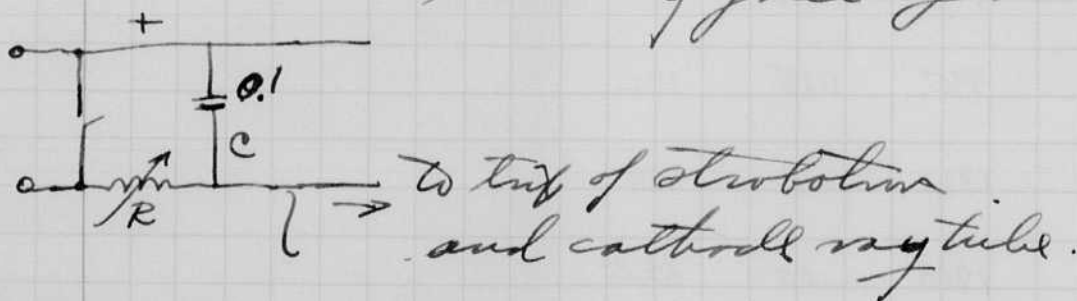 +
0.1
C
R
to trip of strobotron
and cathode ray tube.